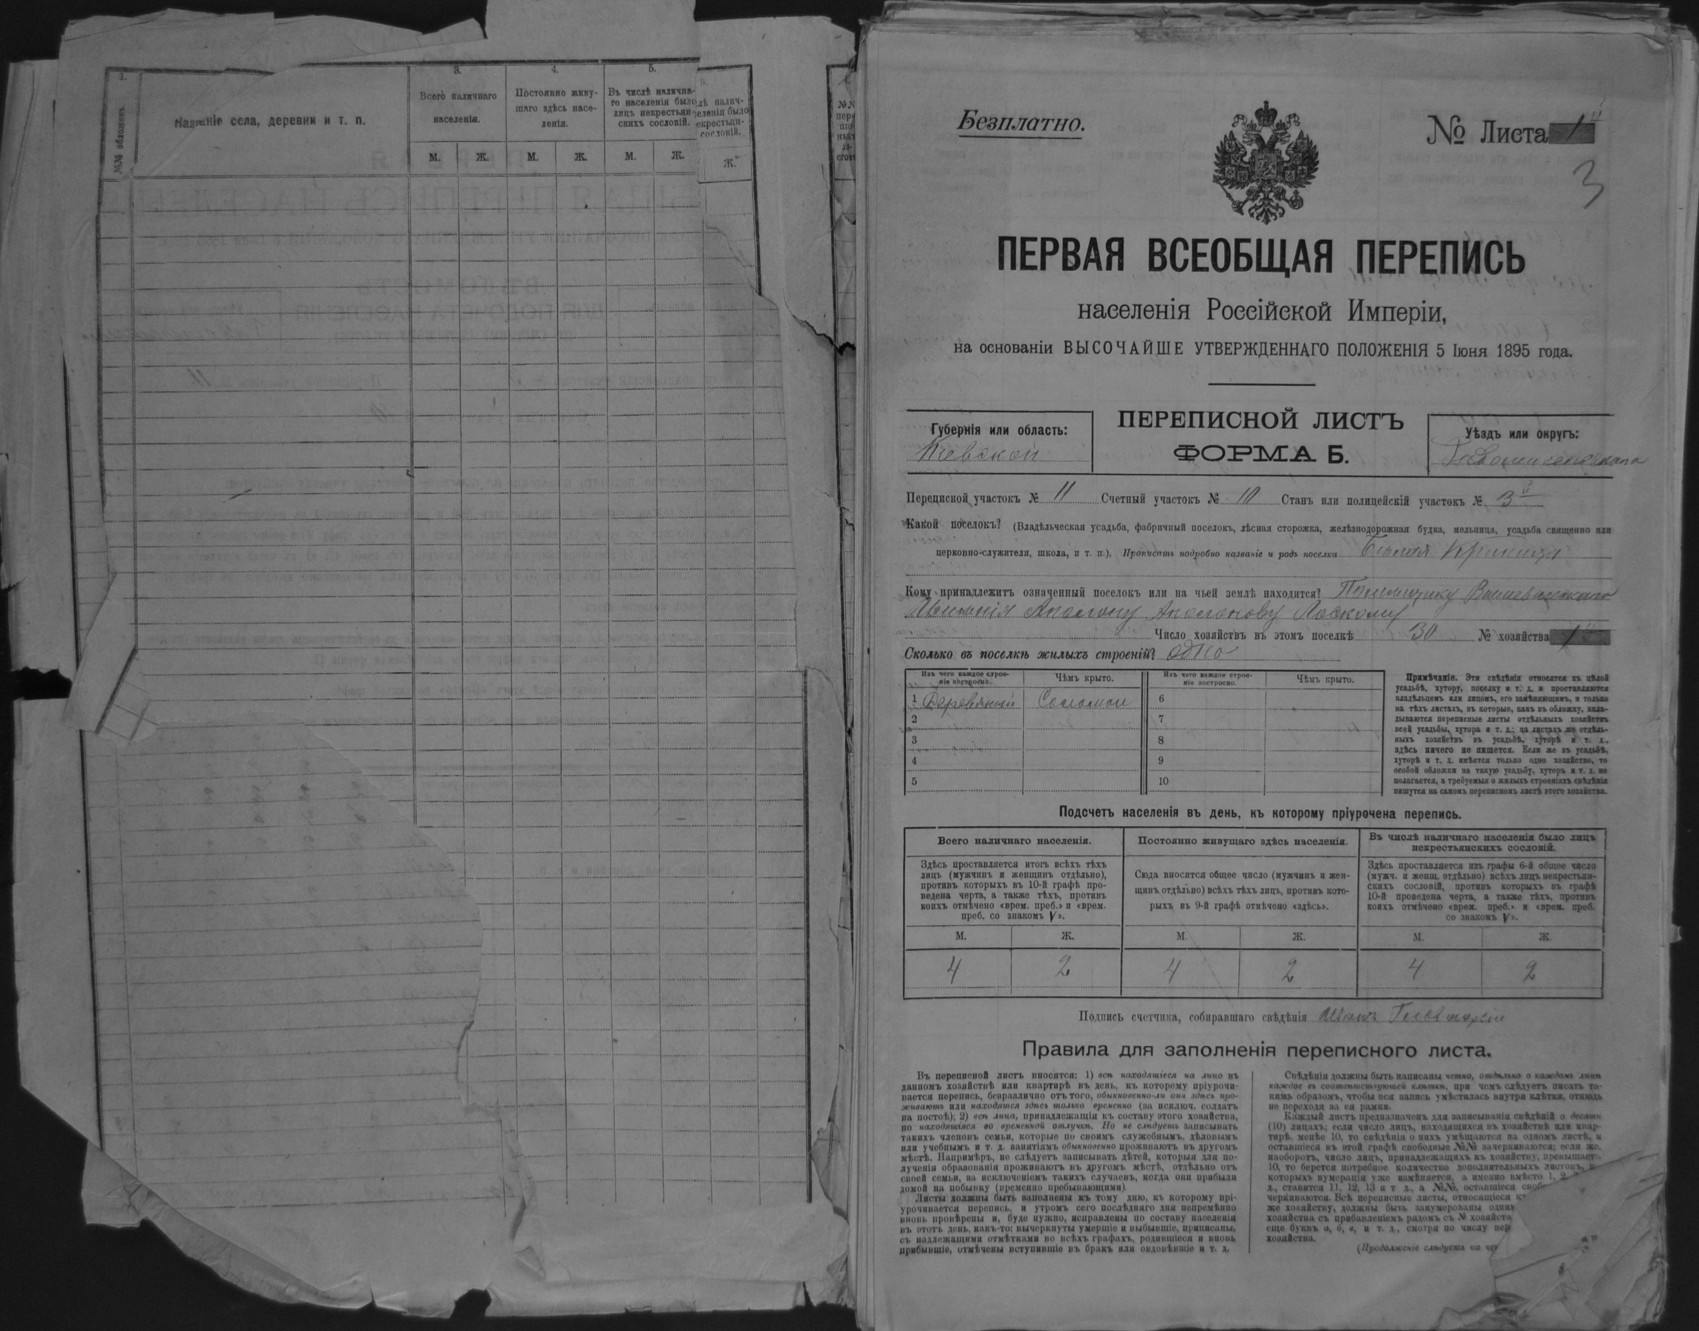 1.
3.
4.
5.
№№ обложекъ.
Названіе села, деревни и т. п.
Всего наличнаго
населенія.
Постоянно живу-
щаго здѣсь насе-
ленія.
Въ числѣ налична-
го населенія было
лицъ некрестьян-
скихъ сословій.
М. Ж. М. Ж. М. Ж.
Ж.
Безплатно.
№ Листа 1
3
ПЕРВАЯ ВСЕОБЩАЯ ПЕРЕПИСЬ
населенія Россійской Имперіи,
на основаніи ВЫСОЧАЙШЕ УТВЕРЖДЕННАГО ПОЛОЖЕНІЯ 5 Іюня 1895 года.
Губернія или область:
Кіевской
ПЕРЕПИСНОЙ ЛИСТЪ
ФОРМА Б.
Уѣздъ или округъ:
Переписной участокъ № 11 Счетный участокъ № 10 Станъ или полицейскій участокъ № 3
Какой поселокъ? (Владѣльческая усадьба, фабричный поселокъ, лѣсная сторожка, желѣзнодорожная будка, мельница, усадьба священно или
церковно-служителя, школа, и т. п.). Прописать подробно названіе и родъ поселка Криница
Кому принадлежитъ означенный поселокъ или на чьей землѣ находится? Помѣщику
Имѣнія
Число хозяйствъ въ этомъ поселкѣ 30 № хозяйства 1
Сколько въ поселкѣ жилыхъ строеній? одно
Изъ чего каждое строе-
ніе построено.
Чѣмъ крыто.
Изъ чего каждое строе-
ніе построено.
Чѣмъ крыто.
1 Деревяный Соломой 6
2 7
3 8
4 9
5 10
Примѣчаніе. Эти свѣдѣнія относятся къ цѣлой
усадьбѣ, хутору, поселку и т. д. и проставляются
владѣльцемъ или лицомъ, его замѣняющимъ, и только
на тѣхъ листахъ, въ которые, какъ въ обложку, вкла-
дываются переписные листы отдѣльныхъ хозяйствъ
всей усадьбы, хутора и т. д.; на листахъ же отдѣль-
ныхъ хозяйствъ въ усадьбѣ, хуторѣ и т. д.,
здѣсь ничего не пишется. Если же въ усадьбѣ,
хуторѣ и т. д. имѣется только одно хозяйство, то
особой обложки на такую усадьбу, хуторъ и т. д. не
полагается, а требуемыя о жилыхъ строеніяхъ свѣдѣнія
пишутся на самомъ переписномъ листѣ этого хозяйства.
Подсчетъ населенія въ день, къ которому пріурочена перепись.
Всего наличнаго населенія.
Постоянно живущаго здѣсь населенія.
Въ числѣ наличнаго населенія было лицъ
некрестьянскихъ сословій.
Здѣсь проставляется итогъ всѣхъ тѣхъ
лицъ (мужчинъ и женщинъ отдѣльно),
противъ которыхъ въ 10-й графѣ про-
ведена черта, а также тѣхъ, противъ
коихъ отмѣчено «врем. преб.» и «врем.
преб. со знакомъ V».
Сюда вносится общее число (мужчинъ и жен-
щинъ отдѣльно) всѣхъ тѣхъ лицъ, противъ кото-
рыхъ въ 9-й графѣ отмѣчено «здѣсь».
Здѣсь проставляется изъ графы 6-й общее число
(мужч. и женщ. отдѣльно) всѣхъ лицъ некрестьян-
скихъ сословій, противъ которыхъ въ графѣ
10-й проведена черта, а также тѣхъ, противъ
коихъ отмѣчено «врем. преб.» и «врем. преб.
со знакомъ V».
М. Ж. М. Ж. М. Ж.
4 2 4 2 4 2
Подпись счетчика, собиравшаго свѣдѣнія
Правила для заполненія переписного листа.
Въ переписной листъ вносятся: 1) всѣ находящіеся на лицо въ
данномъ хозяйствѣ или квартирѣ въ день, къ которому пріурочи-
вается перепись, безразлично отъ того, обыкновенно-ли они здѣсь про-
живаютъ или находятся здѣсь только временно (за исключ. солдатъ
на постоѣ); 2) всѣ лица, принадлежащія къ составу этого хозяйства,
но находящіяся во временной отлучкѣ. Но не слѣдуетъ записывать
такихъ членовъ семьи, которые по своимъ служебнымъ, дѣловымъ
или учебнымъ и т. д. занятіямъ обыкновенно проживаютъ въ другомъ
мѣстѣ. Напримѣръ, не слѣдуетъ записывать дѣтей, которыя для по-
лученія образованія проживаютъ въ другомъ мѣстѣ, отдѣльно отъ
своей семьи, за исключеніемъ такихъ случаевъ, когда они прибыли
домой на побывку (временно пребывающими).
Листы должны быть заполнены къ тому дню, къ которому прі-
урочивается перепись, и утромъ сего послѣдняго дня непремѣнно
вновь провѣрены и, буде нужно, исправлены по составу населенія
въ этотъ день, какъ-то: вычеркнуты умершіе и выбывшіе, приписаны,
съ надлежащими отмѣтками во всѣхъ графахъ, родившіеся и вновь
прибывшіе, отмѣчены вступившіе въ бракъ или овдовѣвшіе и т. д.
Свѣдѣнія должны быть написаны четко, отдѣльно о каждомъ лицѣ
каждое въ соотвѣтствующей клѣткѣ, при чемъ слѣдуетъ писать та-
кимъ образомъ, чтобы вся запись умѣсталась внутри клѣтки, отнюдь
не переходя за ея рамки.
Каждый листъ предназначенъ для записыванія свѣдѣній о десяти
(10) лицахъ; если число лицъ, находящихся въ хозяйствѣ или квар-
тирѣ, менѣе 10, то свѣдѣнія о нихъ умѣщаются на одномъ листѣ, и
оставшіеся въ этой графѣ свободные №№ зачеркиваются; если же,
наоборотъ, число лицъ, принадлежащихъ къ хозяйству, превышаетъ
10, то берется потребное количество дополнительныхъ листовъ,
которыхъ нумерація уже измѣняется, а именно вмѣсто 1, 2,
д., ставится 11, 12, 13 и т. д., а №№, оставшіеся
черкиваются. Всѣ переписные листы, относящіеся
же хозяйству, должны быть занумерованы
хозяйства съ прибавленіемъ рядомъ съ №
еще буквъ а, б, в, и т. д., смотря по числу
хозяйства.
(Продолженіе слѣдуетъ на